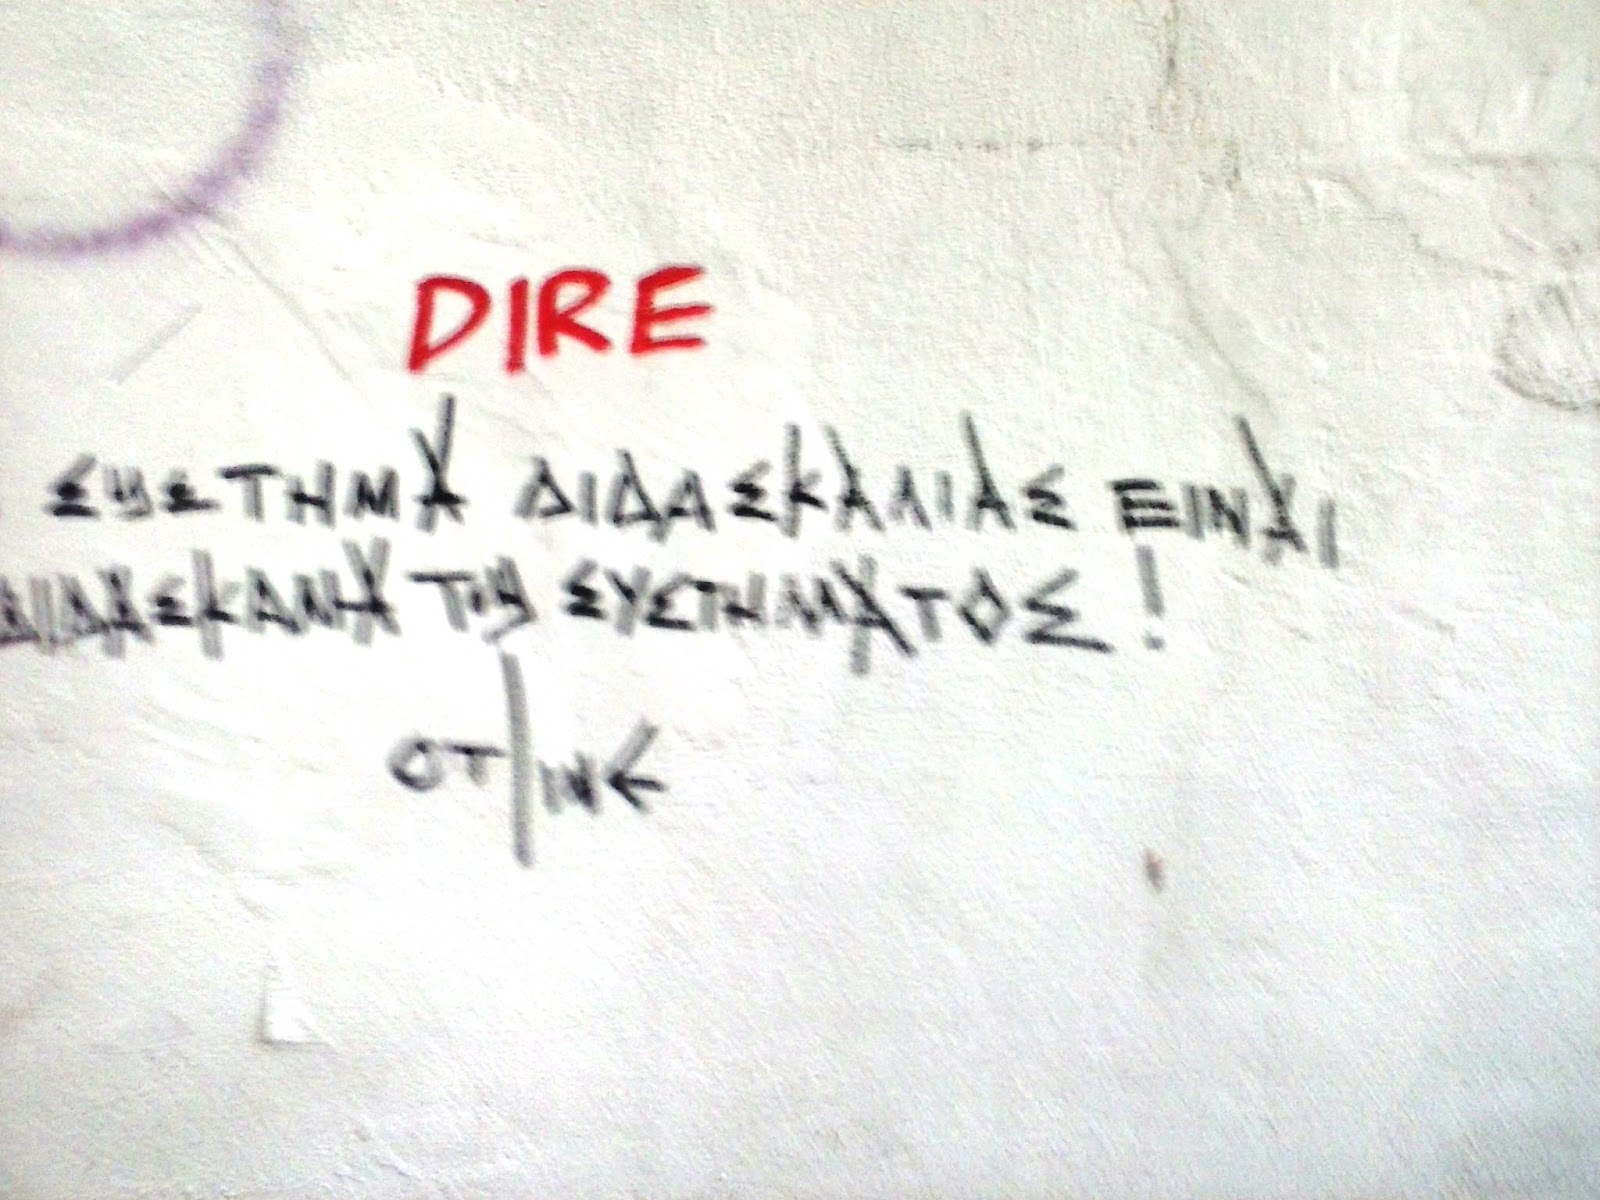 DIRE
ΣΥΣΤΗΜΑ ΔΙΔΑΣΚΑΛΙΑΣ ΕΙΝΑΙ
ΔΙΔΑΣΚΑΛΙΑ ΤΟΥ ΣΥΣΤΗΜΑΤΟΣ!